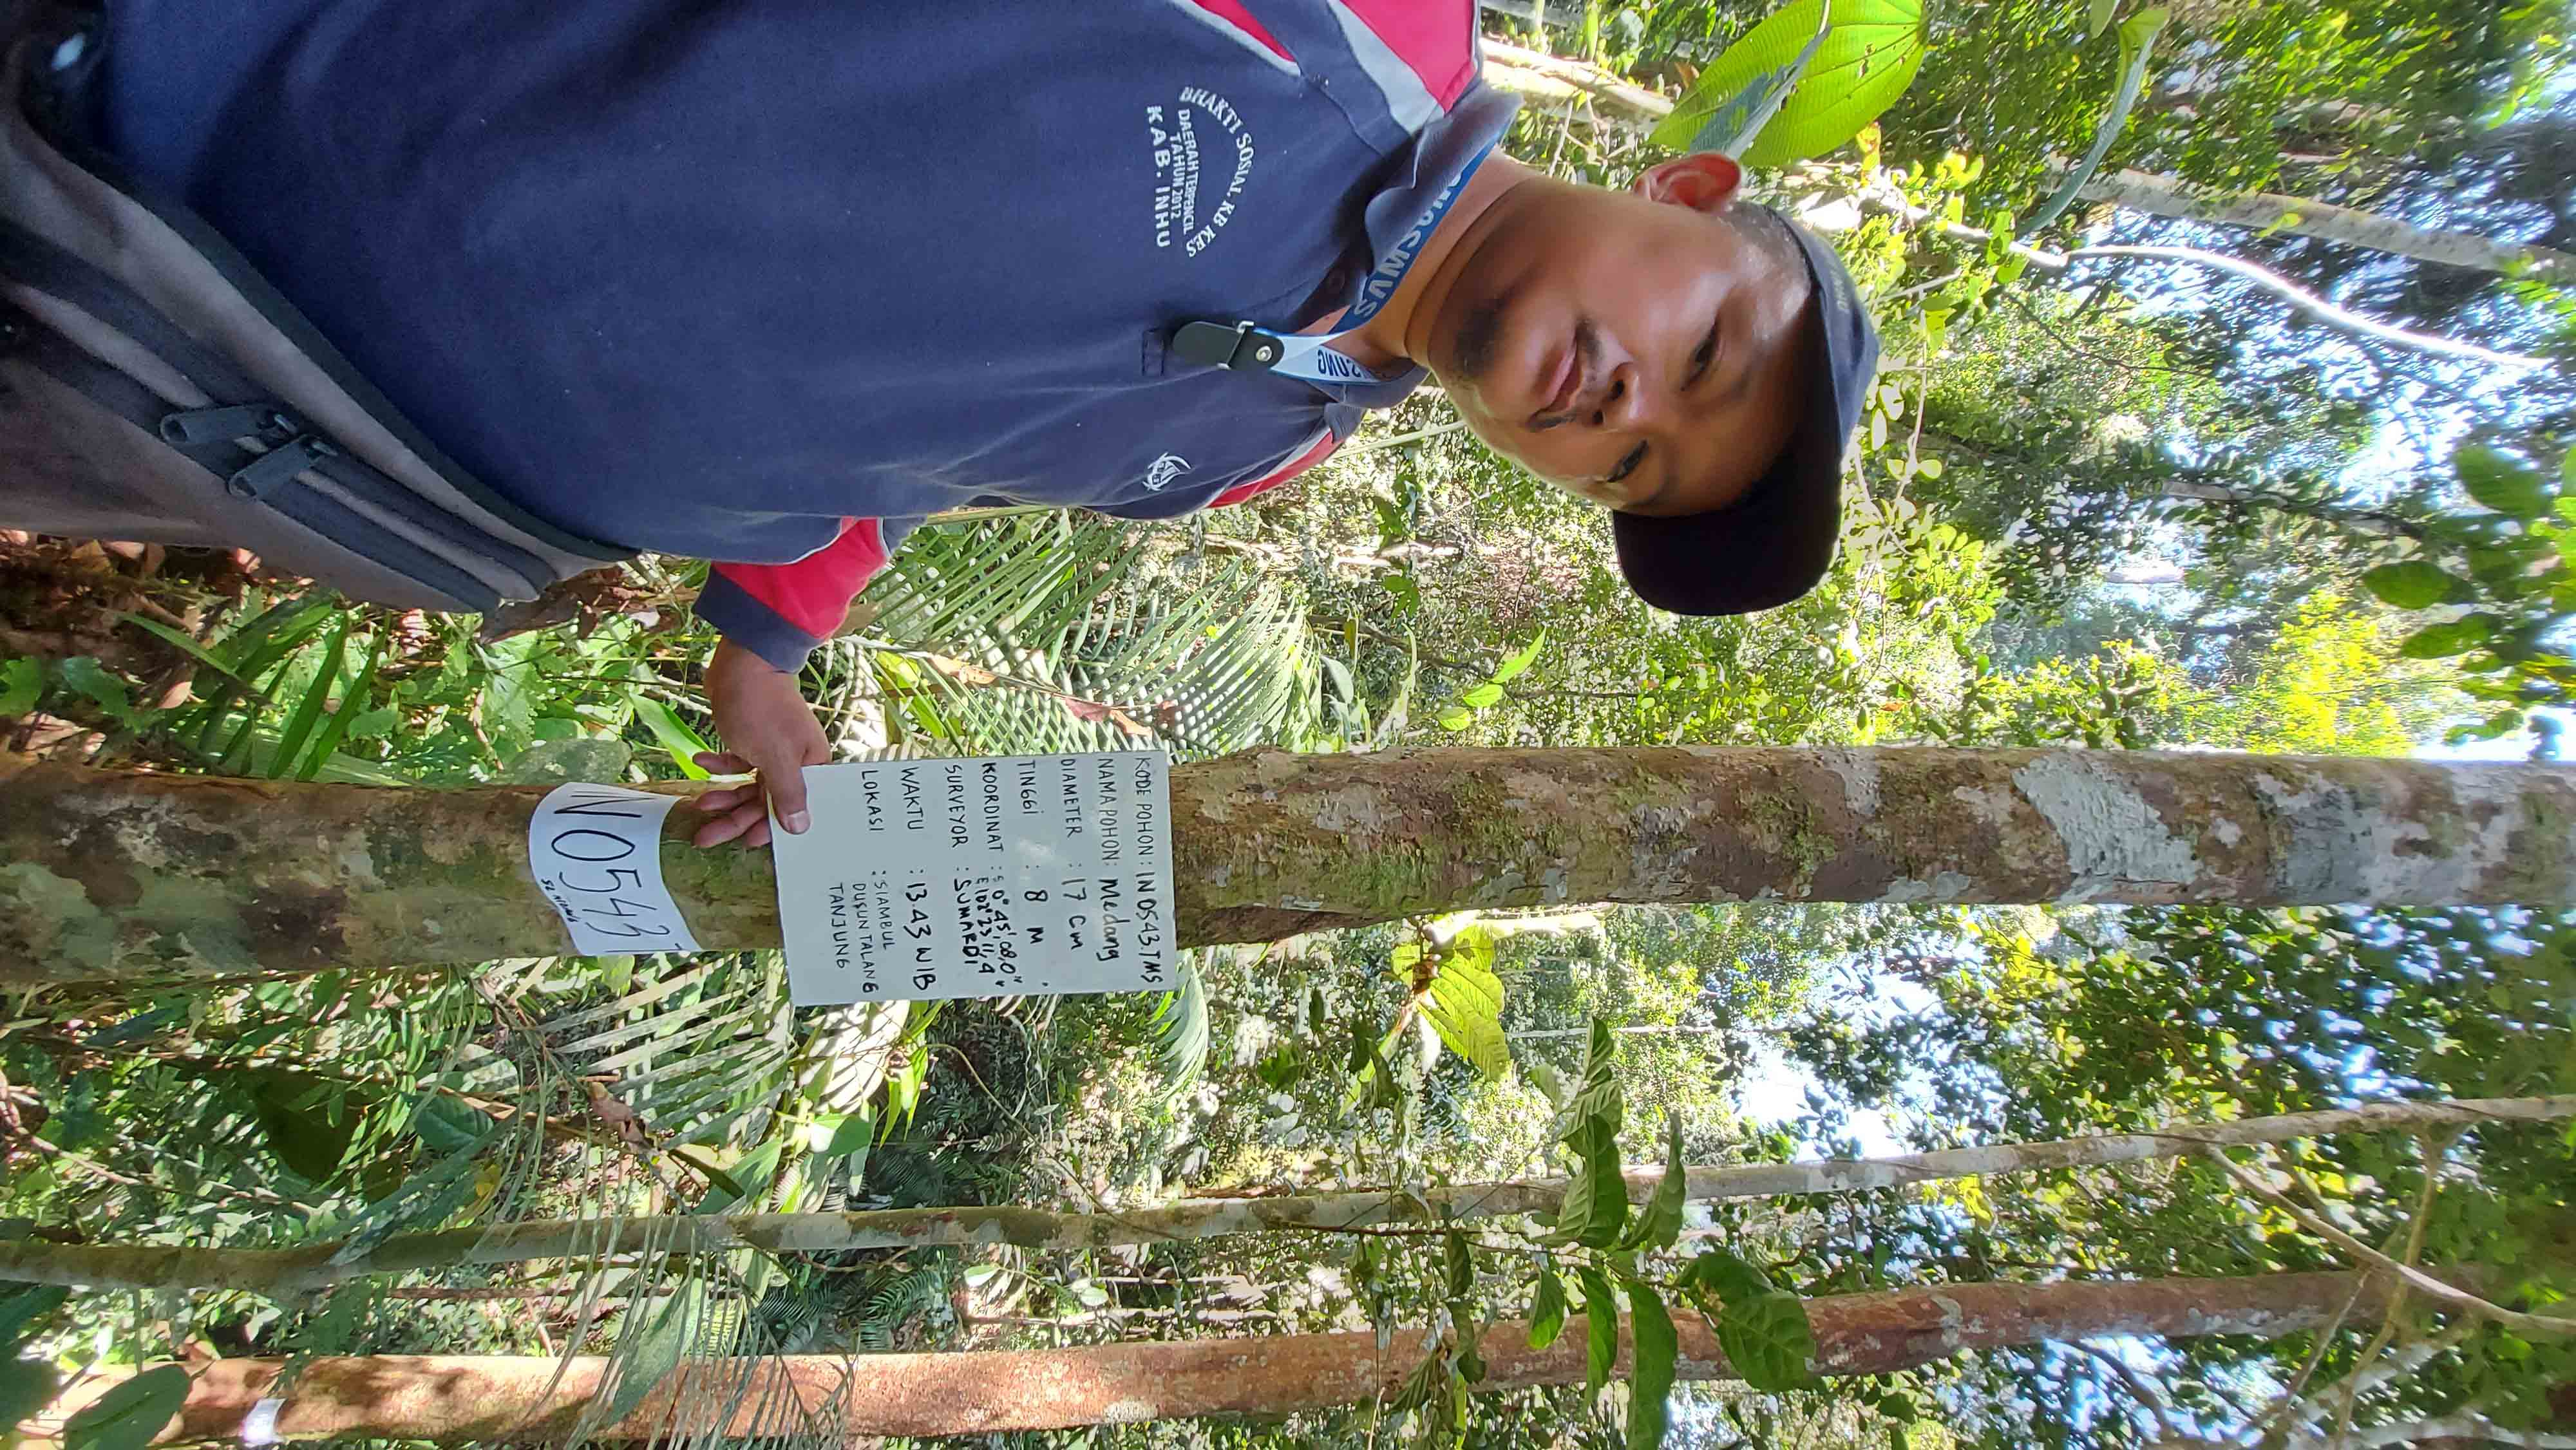 BHAKTI SOSIAL KB KES
DAERAH TERPENCIL
TAHUN 2012
KAB. INHU
SAMSUNG
KODE POHON : IN 0543.TMS
NAMA POHON : Medang
DIAMETER : 17 cm
TINGGI : 8 M
KOORDINAT : S 0° 45' 08.0"
E 102° 23' 11,4"
SURVEYOR : SUMARDI
WAKTU : 13.43 WIB
LOKASI : SIAMBUL
DUSUN TALANG
TANJUNG